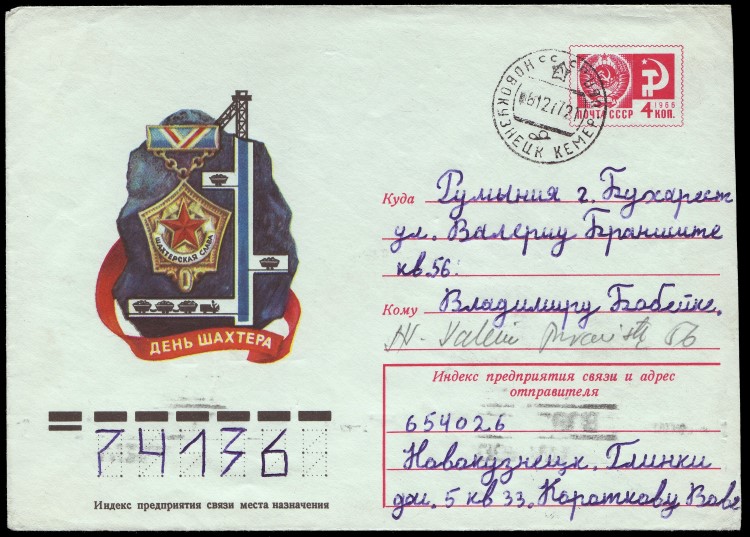 НОВОКУЗНЕЦК КЕМЕР
1966
4 КОП.
ПОЧТА СССР
ШАХТЕРСКАЯ СЛАВА
ДЕНЬ ШАХТЕРА
Куда Румыния г. Бухарест
ул. Валериу Браниште
кв. 56.
Кому Владимиру Бабейке.
56
Индекс предприятия связи и адрес
отправителя
654026
Новокузнецк. Глинки
дом. 5 кв 33. Короткову Вове
74136
Индекс предприятия связи места назначения